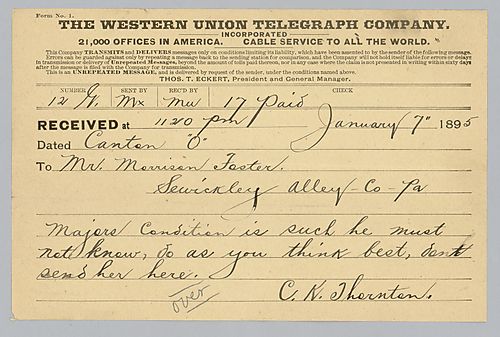 Form No. 1.
THE WESTERN UNION TELEGRAPH COMPANY.
INCORPORATED
21,000 OFFICES IN AMERICA. CABLE SERVICE TO ALL THE WORLD.
This Company TRANSMITS and DELIVERS messages only on conditions limiting its liability, which have been assented to by the sender of the following message.
Errors can be guarded against only by repeating a message back to the sending station for comparison, and the Company will not hold itself liable for errors or delays
in transmission or delivery of Unrepeated Messages, beyond the amount of tolls paid thereon, nor in any case where the claim is not presented in writing within sixty days
after the message is filed with the Company for transmission.
This is an UNREPEATED MESSAGE, and is delivered by request of the sender, under the conditions named above.
THOS. T. ECKERT, President and General Manager.
NUMBER SENT BY REC'D BY CHECK
12 G. Mx Mu 17 Paid
RECEIVED at 1120 pm January 7" 1895
Dated Canton "O"
To Mr. Morrison Foster.
Sewickley Alley-Co-Pa
Majors Condition is such he must
not know, do as you think best, dont
send her here.
C. K. Thornton.
over